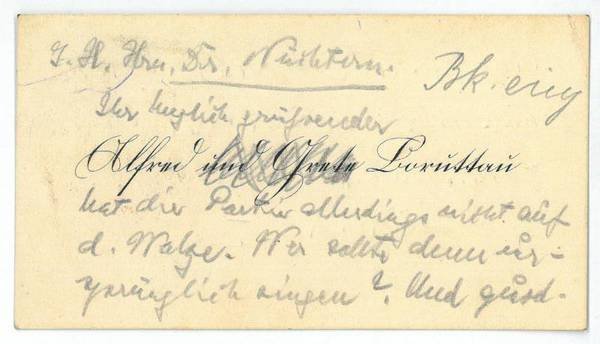 z. H. Hrn. Dr. Nüchtern.
Bk. ein
Ihr herzlich grüßender
Alfred und Grete Boruttau
hat die Partie allerdings nicht auf
d. Walze. Wer sollte denn ur-
sprünglich singen? Und